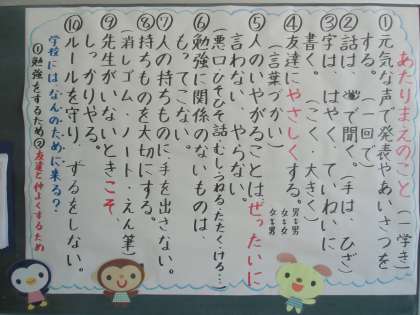 あたりまえのこと(一学き)
①元気な声で発表やあいさつを
する。(一回で)
②話は、目で聞く。(手は、ひざ)
③字は、はやく、ていねいに
書く。(こく、大きく)
④友達にやさしくする。男と男
女と女
女と男
(言葉づかい)
⑤人のいやがることは、ぜったいに
言わない、やらない。
(悪口・ひそひそ話・むし・つねる・たたく・ける…)
⑥勉強に関係のないものは、
もってこない。
⑦人の持ちものに手を出さない。
⑧持ちものを大切にする。
(消しゴム・ノート・えん筆)
⑨先生がいないときこそ、
しっかりやる。
⑩ルールを守り、ずるをしない。
学校にはなんのために来る?
①勉強をするため②友達と仲よくするため